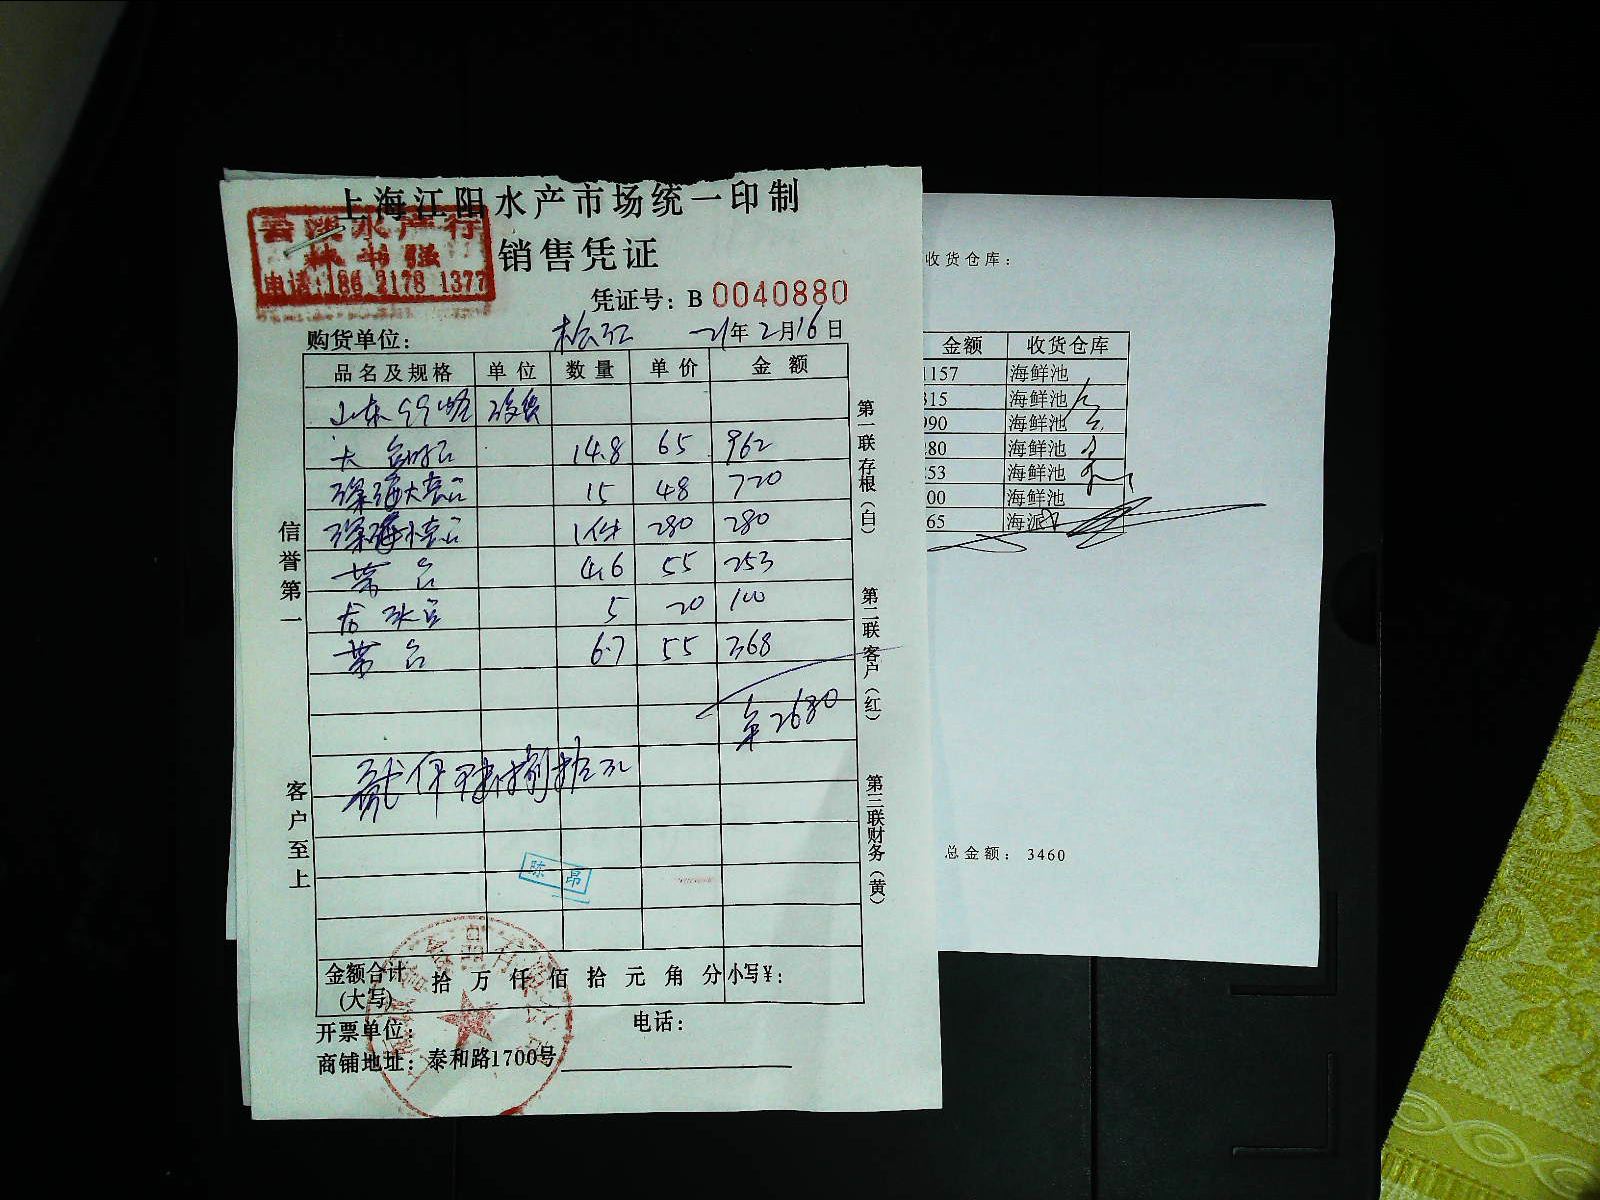 上海江阳水产市场统一印制
水产行
电话:186 2178 1377
销售凭证
凭证号: B 0040880
购货单位: 松江 21年2月16日
品名及规格 单位 数量 单价 金额
山东 没货
大 14.8 65 962
深海大 15 48 720
深海小 1件 280 280
4.6 55 253
5 20 100
6.7 55 368
2680
贰仟陆佰捌拾元
陈 昂
金额合计(大写) 拾 万 仟 佰 拾 元 角 分 小写¥:
开票单位: 电话:
商铺地址: 泰和路1700号
信誉第一
客户至上
第一联存根(白)
第二联客户(红)
第三联财务(黄)
收货仓库:
金额 收货仓库
1157 海鲜池
315 海鲜池
990 海鲜池
280 海鲜池
53 海鲜池
00 海鲜池
65 海派
总金额: 3460